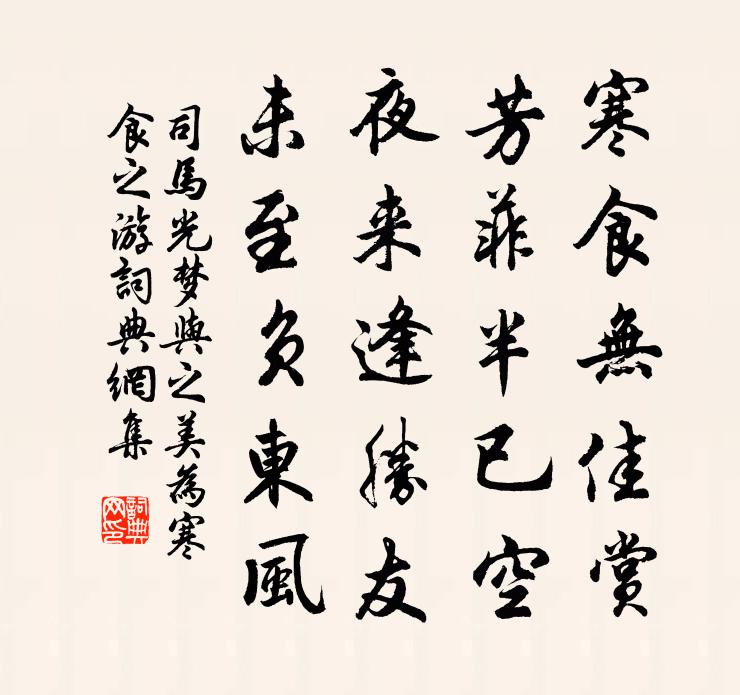 寒食無佳賞
芳菲半已空
夜来逢勝友
未至負東風
司馬光梦與之美為寒
食之游詞典網集
詞典网印